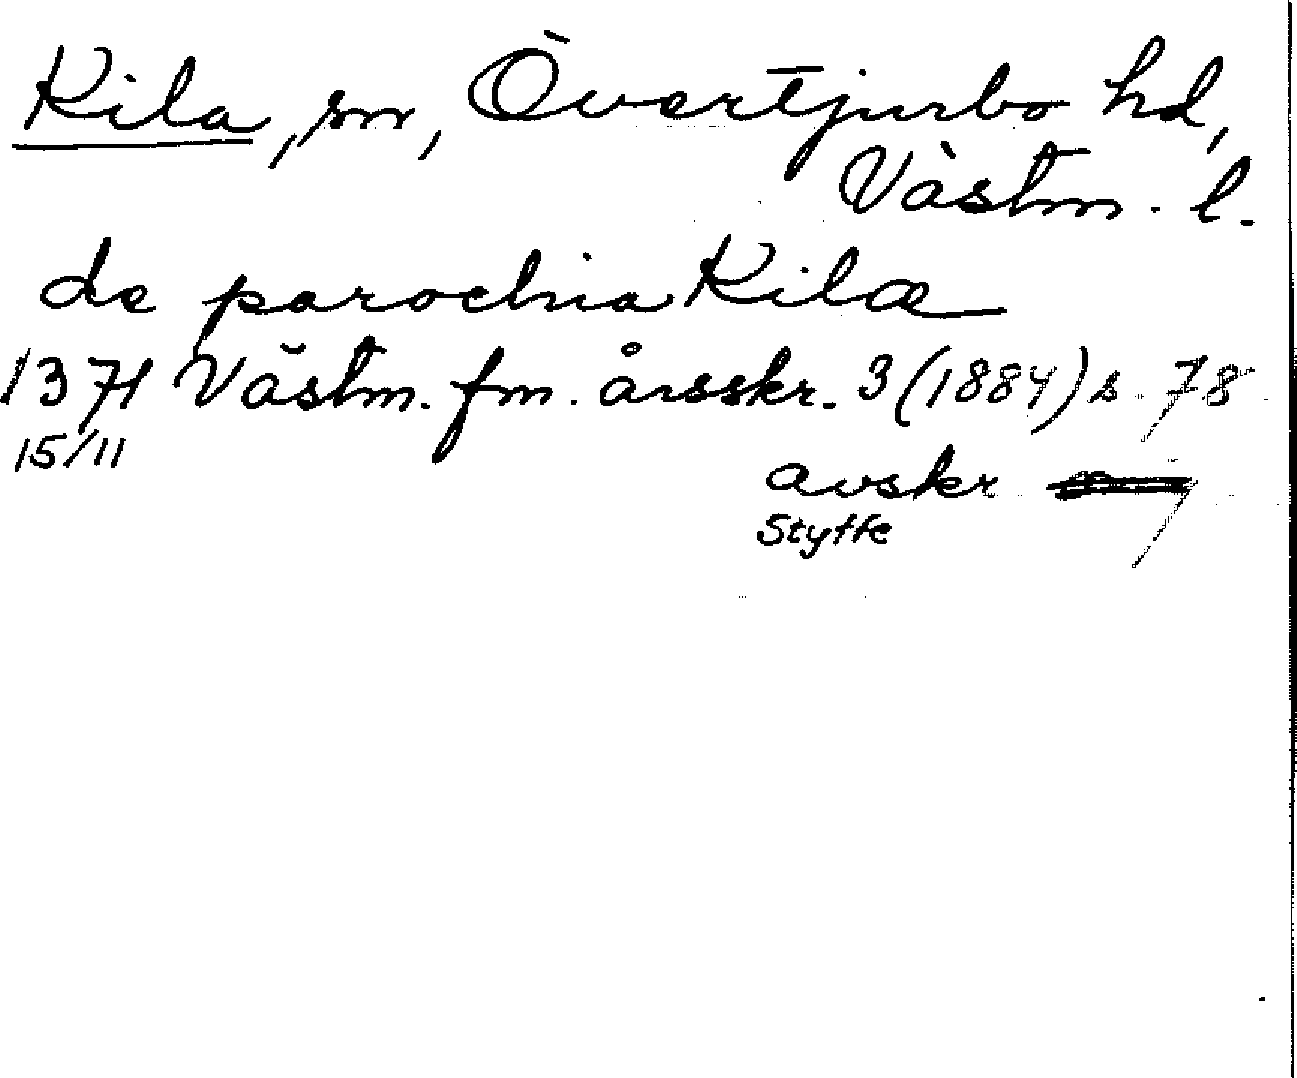 Kila, sn, Övertjurbo hd,
Västm. l.
de parochia Kilæ
1371 Västm. fm. årsskr. 3 (1884) s. 78
15/11
avskr
Styffe